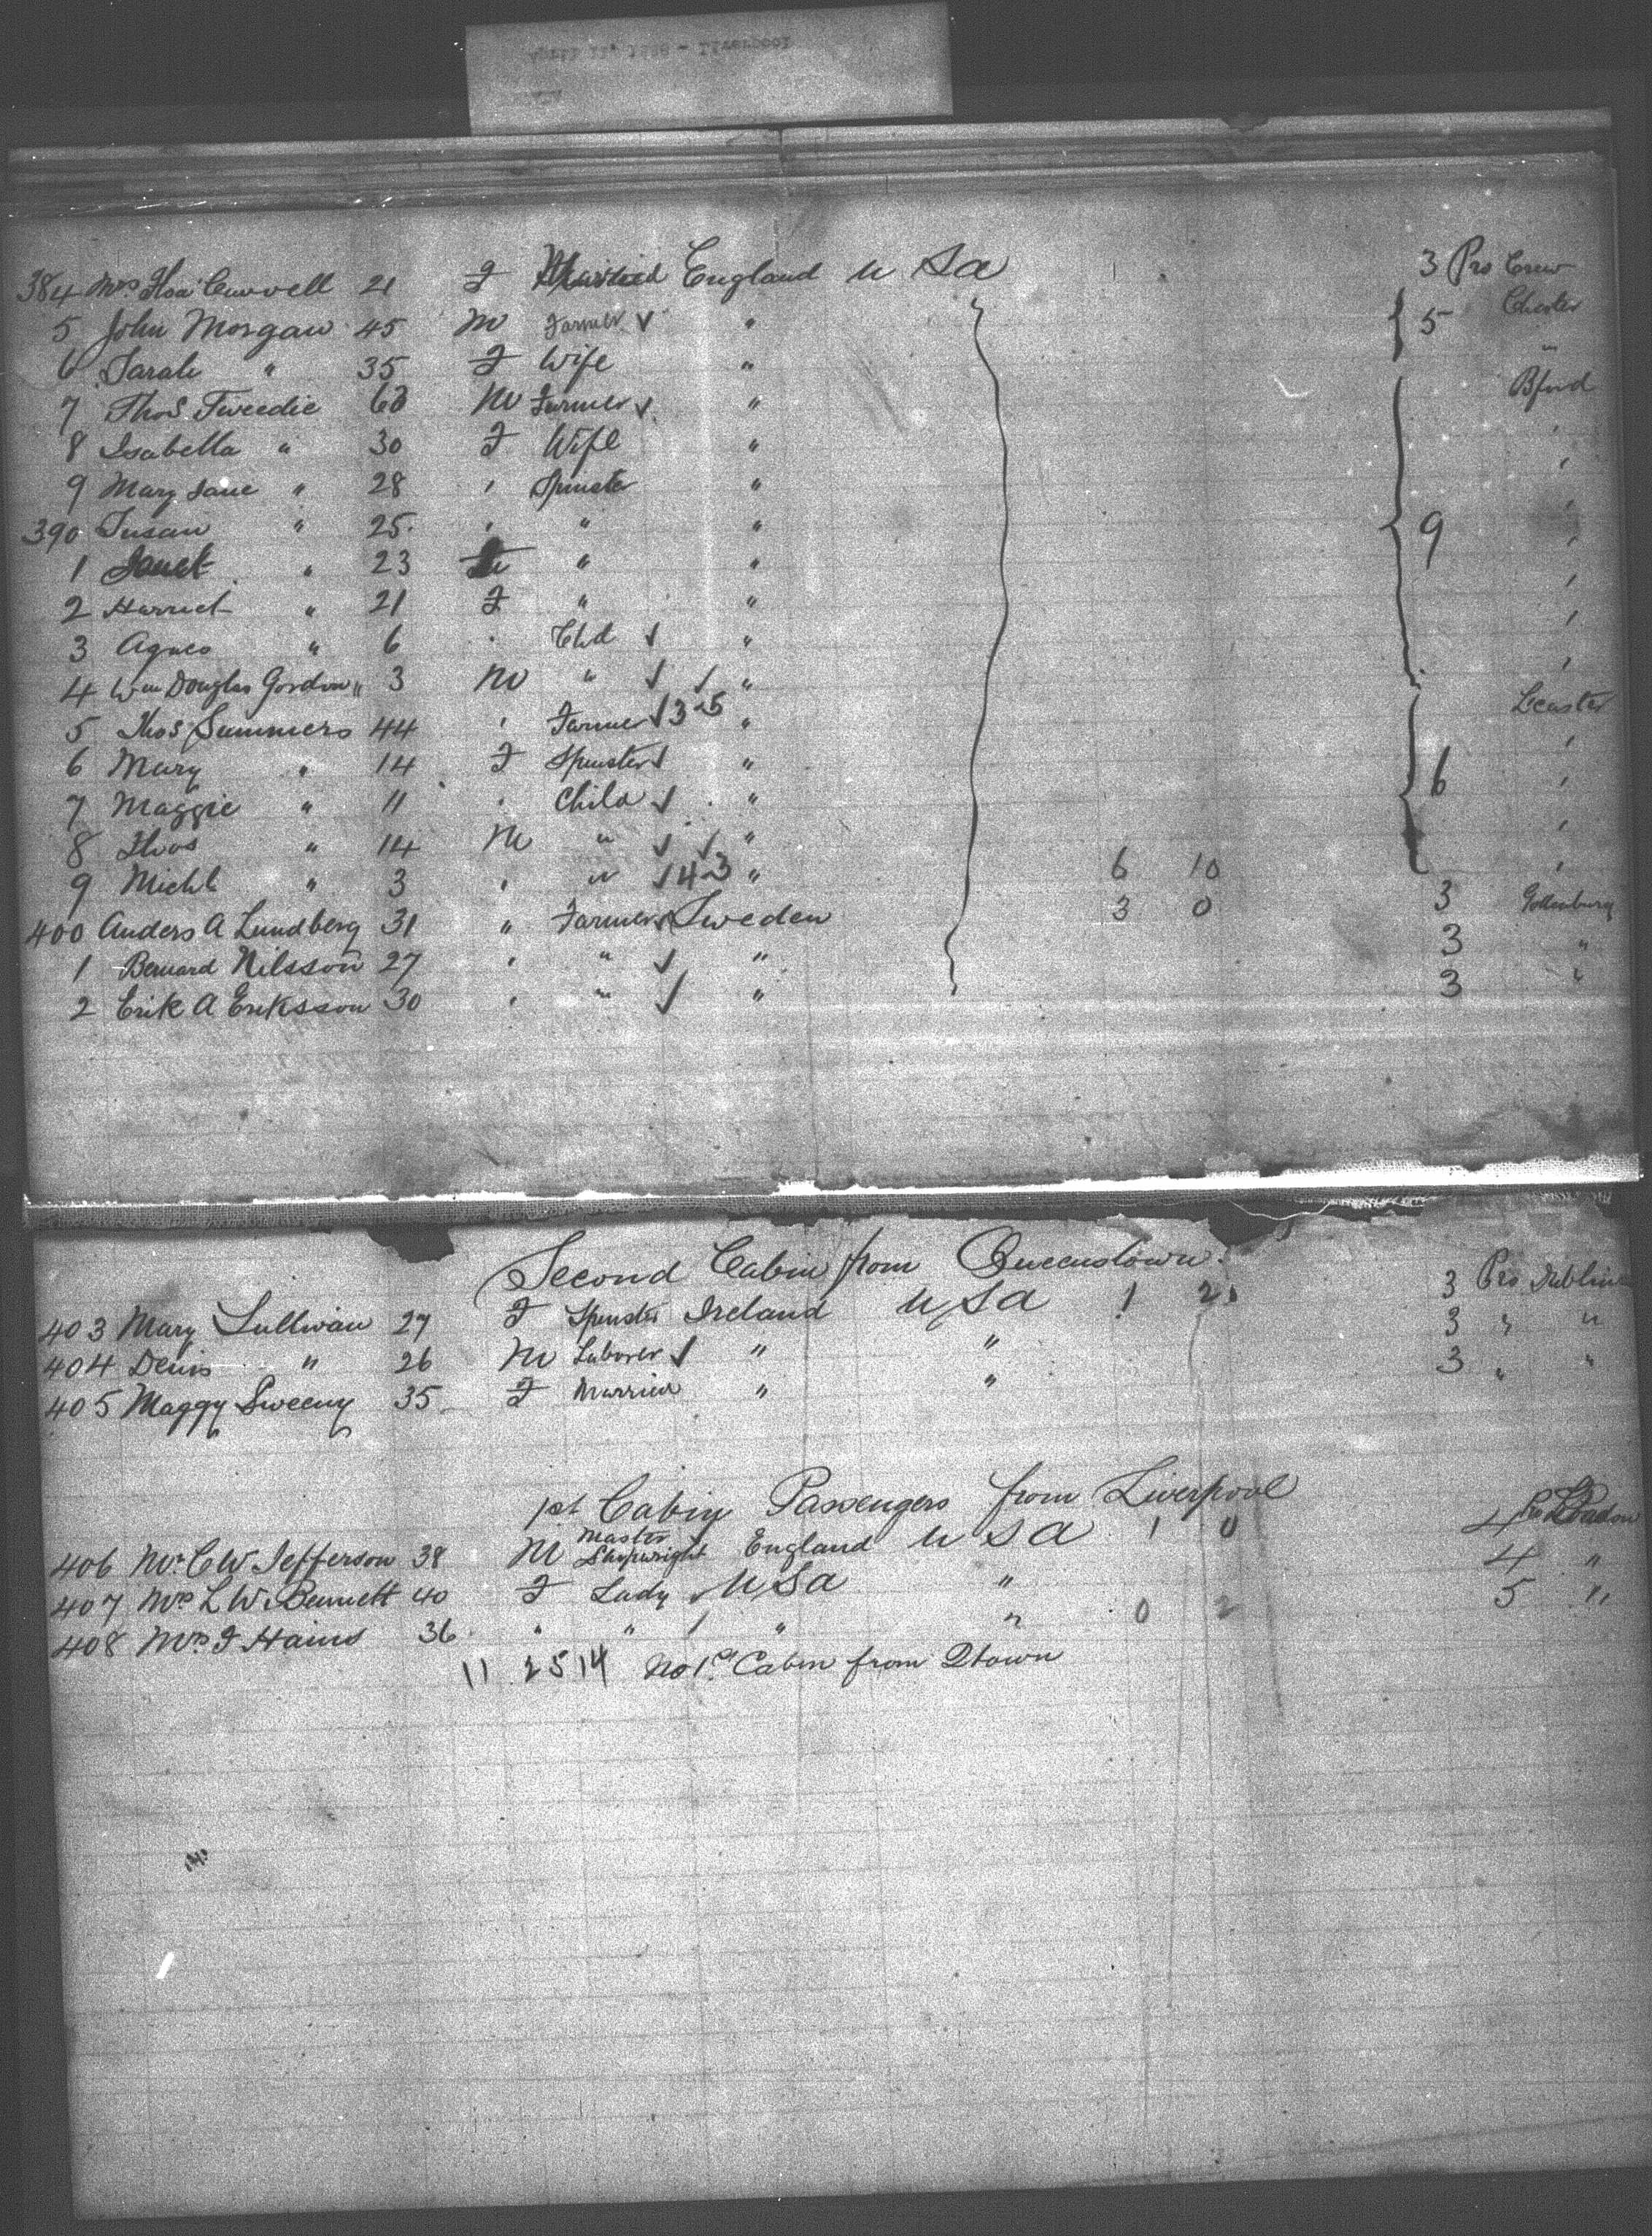 384 Mrs Curvell 21 F Married England U S a 3 Pro Crew
5 John Morgan 45 M Farmer ✓ " 5 Chester
6 Sarah " 35 F Wife " "
7 Thos. Tweedie 63 M Farmer ✓ " Bford
8 Isabella " 30 F Wife " '
9 Mary Jane " 28 ' Spinster " '
390 Susan " 25 ' " " 9 '
1 Janet " 23 F " " '
2 Harriet " 21 F " " '
3 Agnes " 6 ' Chd ✓ " '
4 Wm Douglas Gordon " 3 M " ✓ ✓ " '
5 Thos Summers 44 ' Farmer ✓ 3 25 " Lcaster
6 Mary " 14 F Spinster ✓ " 6 '
7 Maggie " 11 ' Child ✓ " '
8 Thos " 14 M " ✓ ✓ " '
9 Michl " 3 ' " ✓ 4 23 " 6 10 '
400 Anders A Lundberg 31 " Farmer ✓ Sweden 3 0 3 Gottenburg
1 Bernard Nilsson 27 ' " ✓ " 3 "
2 Erik A Eriksson 30 ' " ✓ " 3 "
Second Cabin from Queenstown.
403 Mary Sullivan 27 F Spinster Ireland U S a 1 2 3 Pro Dublin
404 Denis " 26 M Laborer ✓ " " 3 " "
405 Maggy Sweeny 35 F Married " " 3 " "
1st Cabin Passengers from Liverpool
406 Mr. C W Jefferson 38 M Master Shipwright England U S a 1 0 4 Pro London
407 Mrs L W. Bennett 40 F Lady ✓ U S a " 4 "
408 Mrs F Hains 36 " " / " " 0 2 5 "
11 25 14 No 1st Cabin from Qtown